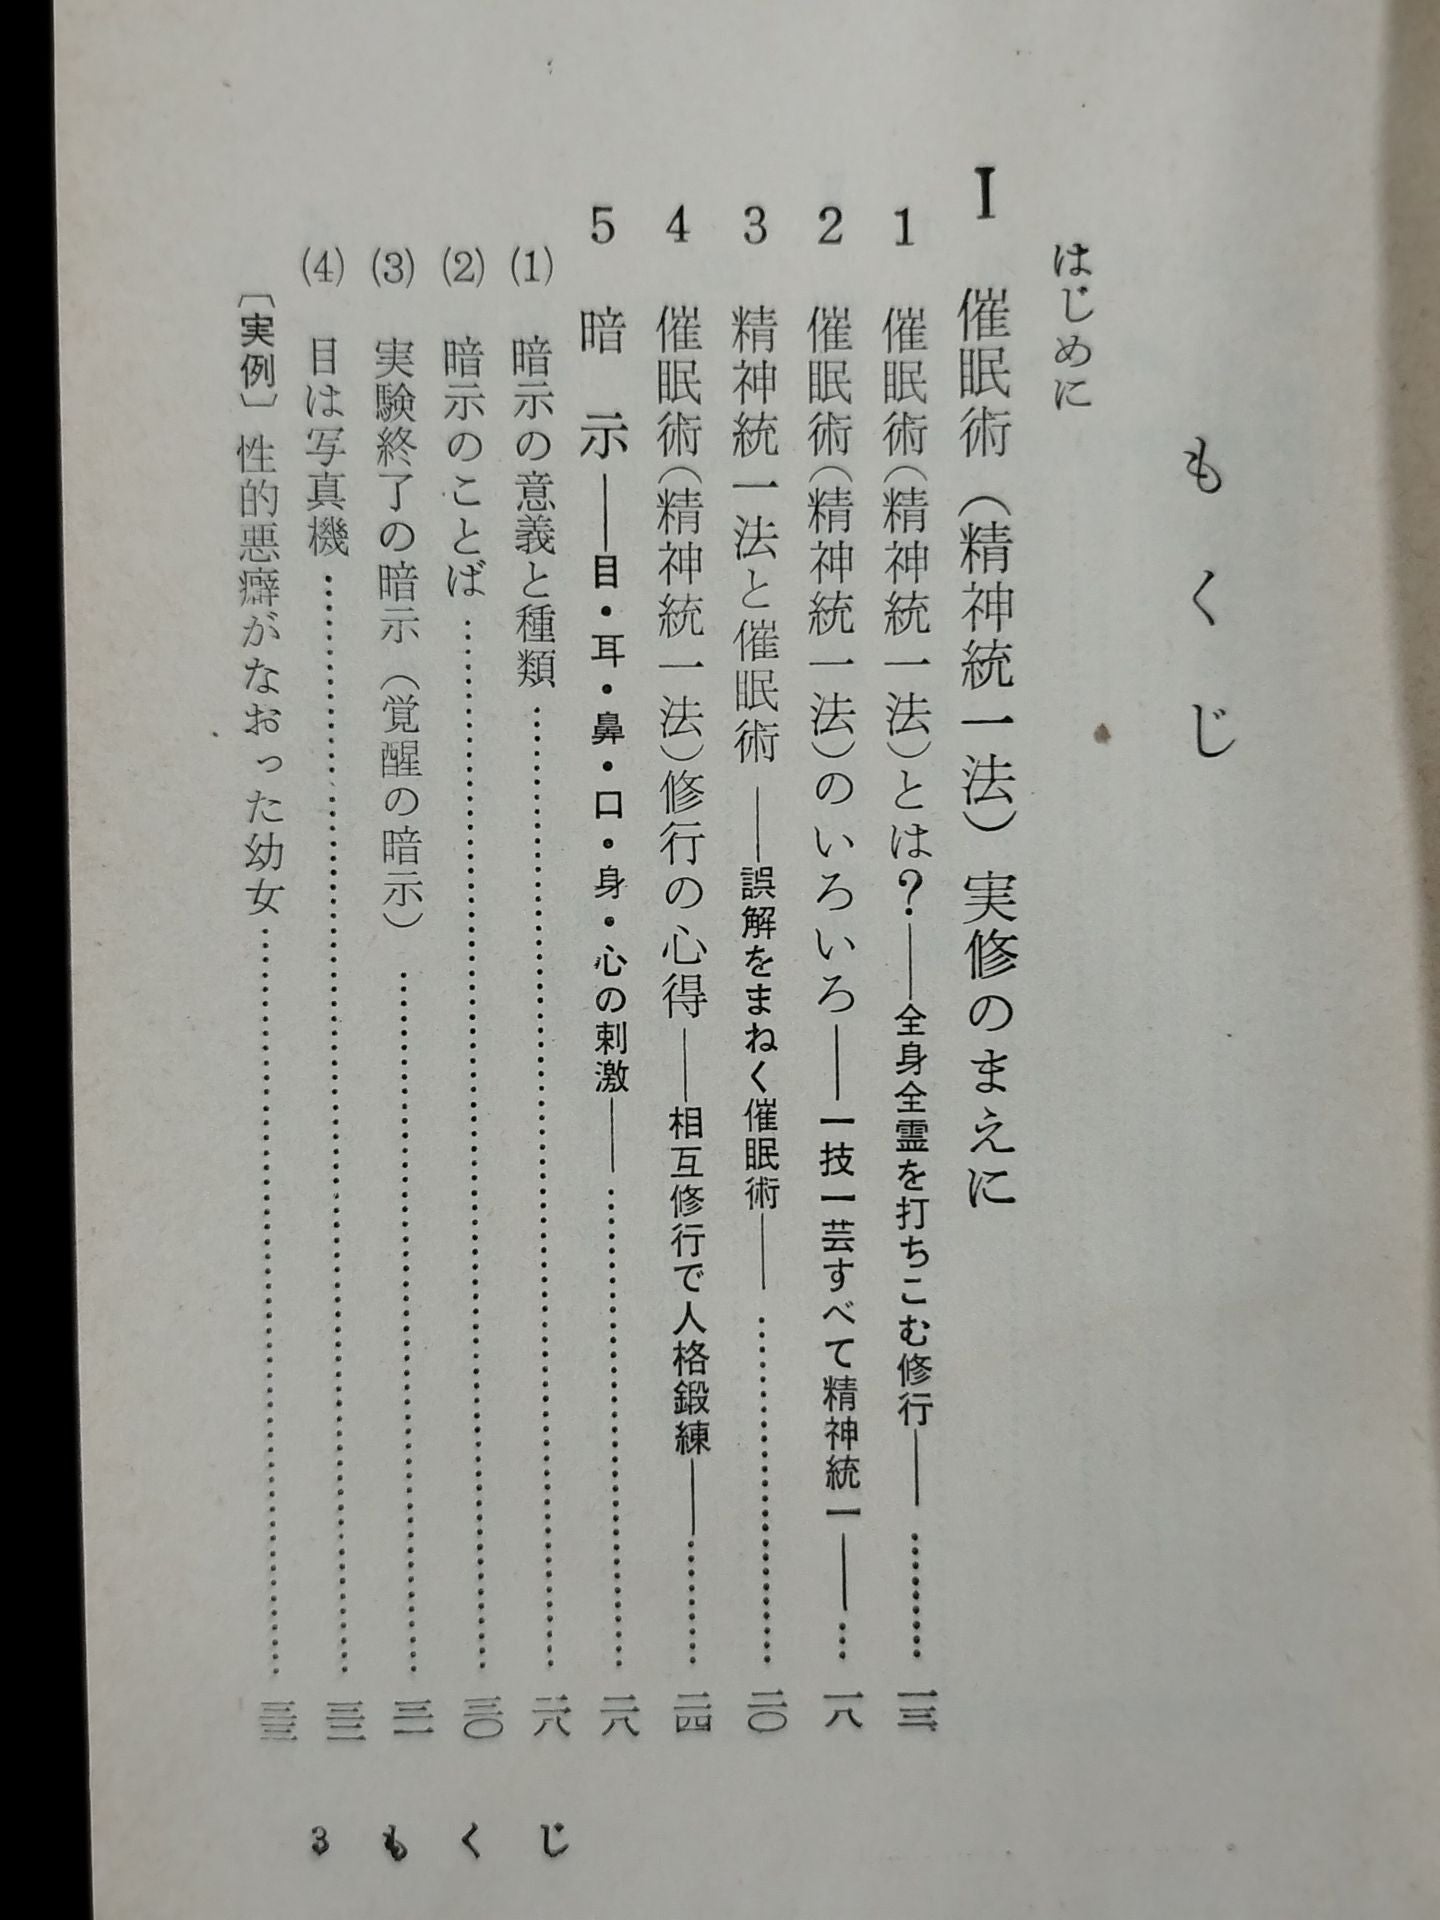 もくじ
はじめに
I 催眠術（精神統一法）実修のまえに
1 催眠術（精神統一法）とは？――全身全霊を打ちこむ修行――…………一三
2 催眠術（精神統一法）のいろいろ――一技一芸すべて精神統一――…一八
3 精神統一法と催眠術――誤解をまねく催眠術――…………二〇
4 催眠術（精神統一法）修行の心得――相互修行で人格鍛練――…………二四
5 暗示――目・耳・鼻・口・身・心の刺激――…………二八
(1) 暗示の意義と種類…………二八
(2) 暗示のことば…………三〇
(3) 実験終了の暗示（覚醒の暗示）…………三一
(4) 目は写真機…………三三
〔実例〕性的悪癖がなおった幼女…………三三
3 もくじ